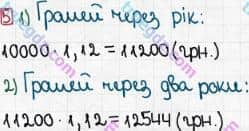 5 1) Грошей через рік:
10000 · 1,12 = 11200 (грн.)
2) Грошей через два роки:
11200 · 1,12 = 12544 (грн.)